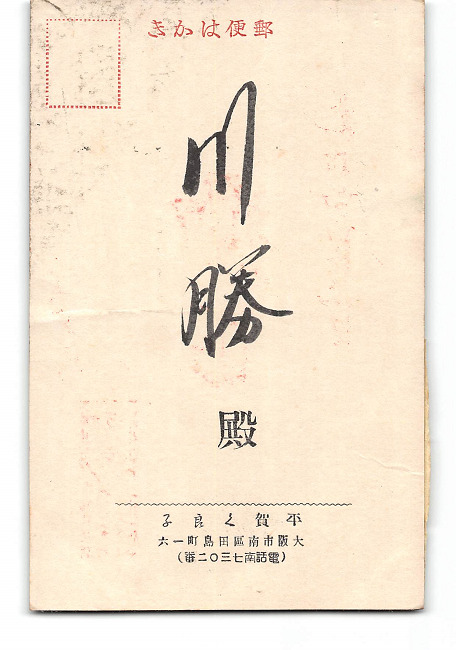 郵便はかき
川勝
殿
平賀く良子
大阪市南區田島町一六
(電話南七三〇二番)